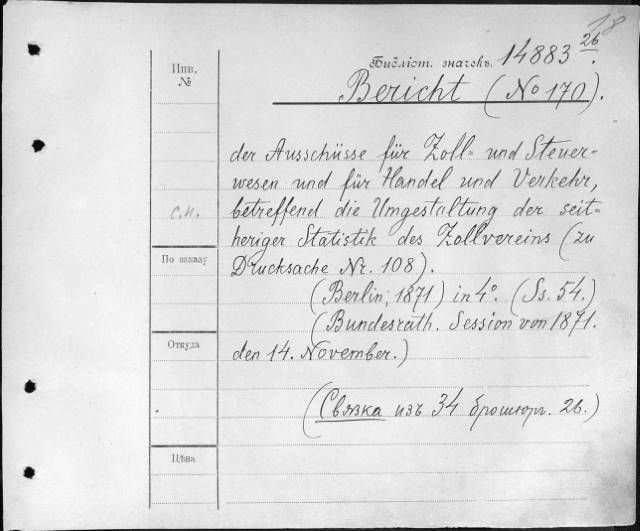 18
Инв.
№
Библіот. значекъ. 14883 26.
Bericht (No 170).
der Ausschüsse für Zoll= und Steuer-
wesen und für Handel und Verkehr,
с.н. betreffend die Umgestaltung der seit=
heriger Statistik des Zollvereins (zu
По заказу
Drucksache Nr. 108).
(Berlin, 1871) in 4°. (Ss. 54.)
(Bundesrath. Session von 1871.
Откуда
den 14. November.)
(Связка изъ 34 брошюръ. 26.)
Цѣна